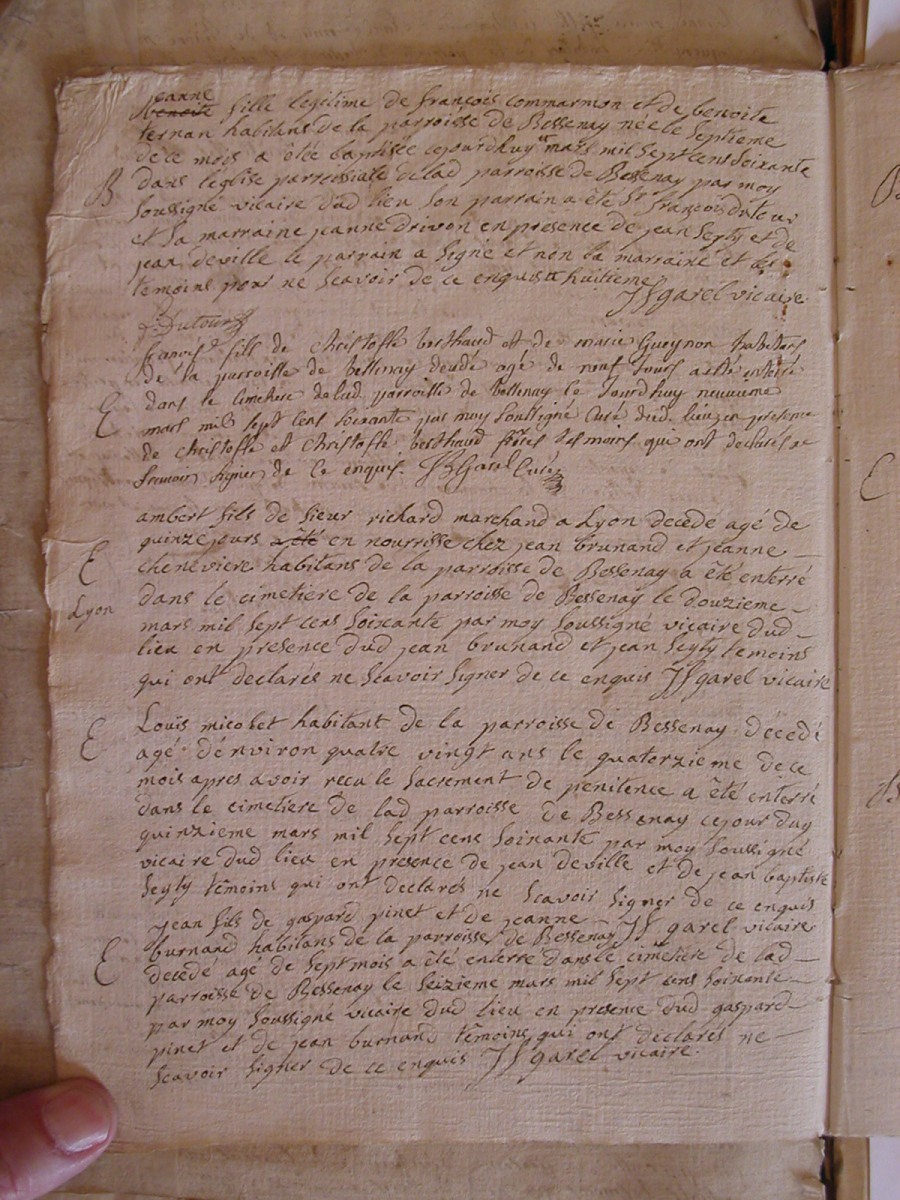 jeanne
benoite fille legitime de françois commarmon et de benoite
ternan habitans de la parroisse de Bessenay née le septieme
de ce mois a êté baptisée cejourdhuy mars mil sept cens soixante
B dans l'eglise parroissiale de lad parroisse de Bessenay par moy
soussigné vicaire dud lieu son parrain a êté Sr françois dutour
et sa marraine jeanne drivon en presence de jean seyty et de
jean deville le parrain a signé et non la marraine et les
temoins pour ne scavoir de ce enquis huitieme
JJ garel vicaire
Dutour
fils de christofle berthaud et de marie Gueynon habitans
de la parroisse de bessenay decedé agé de neuf jours a esté enterré
E dans le cimetiere de lad parroisse de Bessenay le jourdhuy neuvieme
mars mil sept cens soixante par moy soussigné Curé dud lieu en presence
de christofle et christofle berthaud freres tesmoins qui ont declarés ne
scavoir signer de ce enquis. Garel Curé
ambert fils de sieur richard marchand a Lyon decedé agé de
quinze jours a êté en nourrisse chez jean brunand et jeanne
E chenevière habitans de la parroisse de Bessenay a êté enterré
Lyon dans le cimetiere de la parroisse de Bessenay le douzieme
mars mil sept cens soixante par moy soussigné vicaire dud
lieu en presence dud jean brunand et jean seyty temoins
qui ont declarés ne scavoir signer de ce enquis JJ garel vicaire
E Louis micolet habitant de la parroisse de Bessenay décedé
agé d'environ quatre vingt ans le quatorzieme de ce
mois apres avoir recu le sacrement de penitence a êté enterré
dans le cimetiere de lad parroisse de Bessenay cejourduy
quinzieme mars mil sept cens soixante par moy soussigné
vicaire dud lieu en presence de jean deville et de jean baptiste
seyty têmoins qui ont declarés ne scavoir signer de ce enquis
jean fils de gaspard pinet et de jeanne JJ garel vicaire
E burnand habitans de la parroisse de Bessenay
decedé agé de sept mois a êté enterré dans le cimetiere de lad
parroisse de Bessenay le seizieme mars mil sept cens soixante
par moy soussigné vicaire dud lieu en presence dud gaspard
pinet et de jean burnand têmoins qui ont declarés ne
scavoir signer de ce enquis JJ garel vicaire